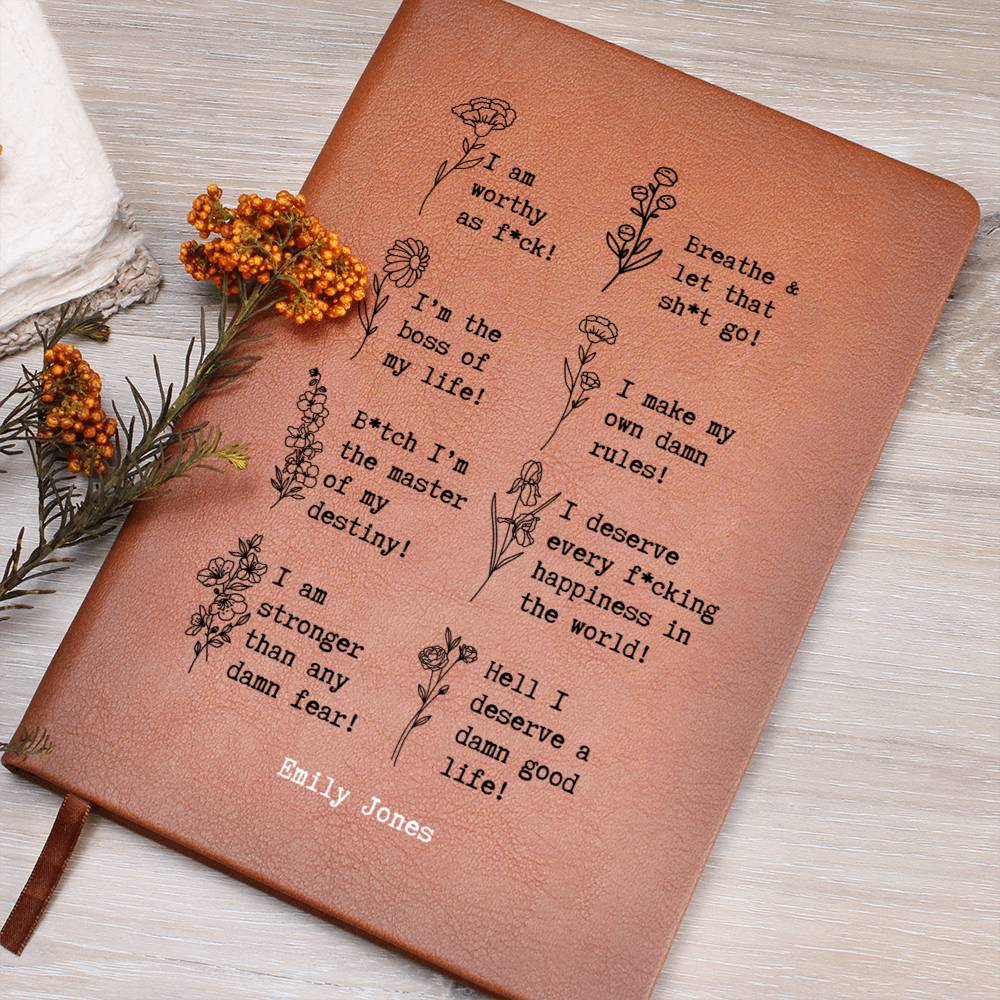 I am
worthy
as f*ck!
Breathe &
let that
sh*t go!
I'm the
boss of
my life!
I make my
own damn
rules!
B*tch I'm
the master
of my
destiny!
I deserve
every f*cking
happiness in
the world!
I am
stronger
than any
damn fear!
Hell I
deserve a
damn good
life!
Emily Jones